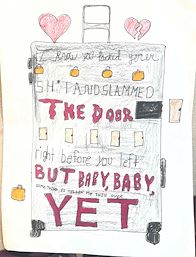 I know you packed your
SH*T AND SLAMMED
THE DOOR
right before you left
BUT BABY, BABY,
YET